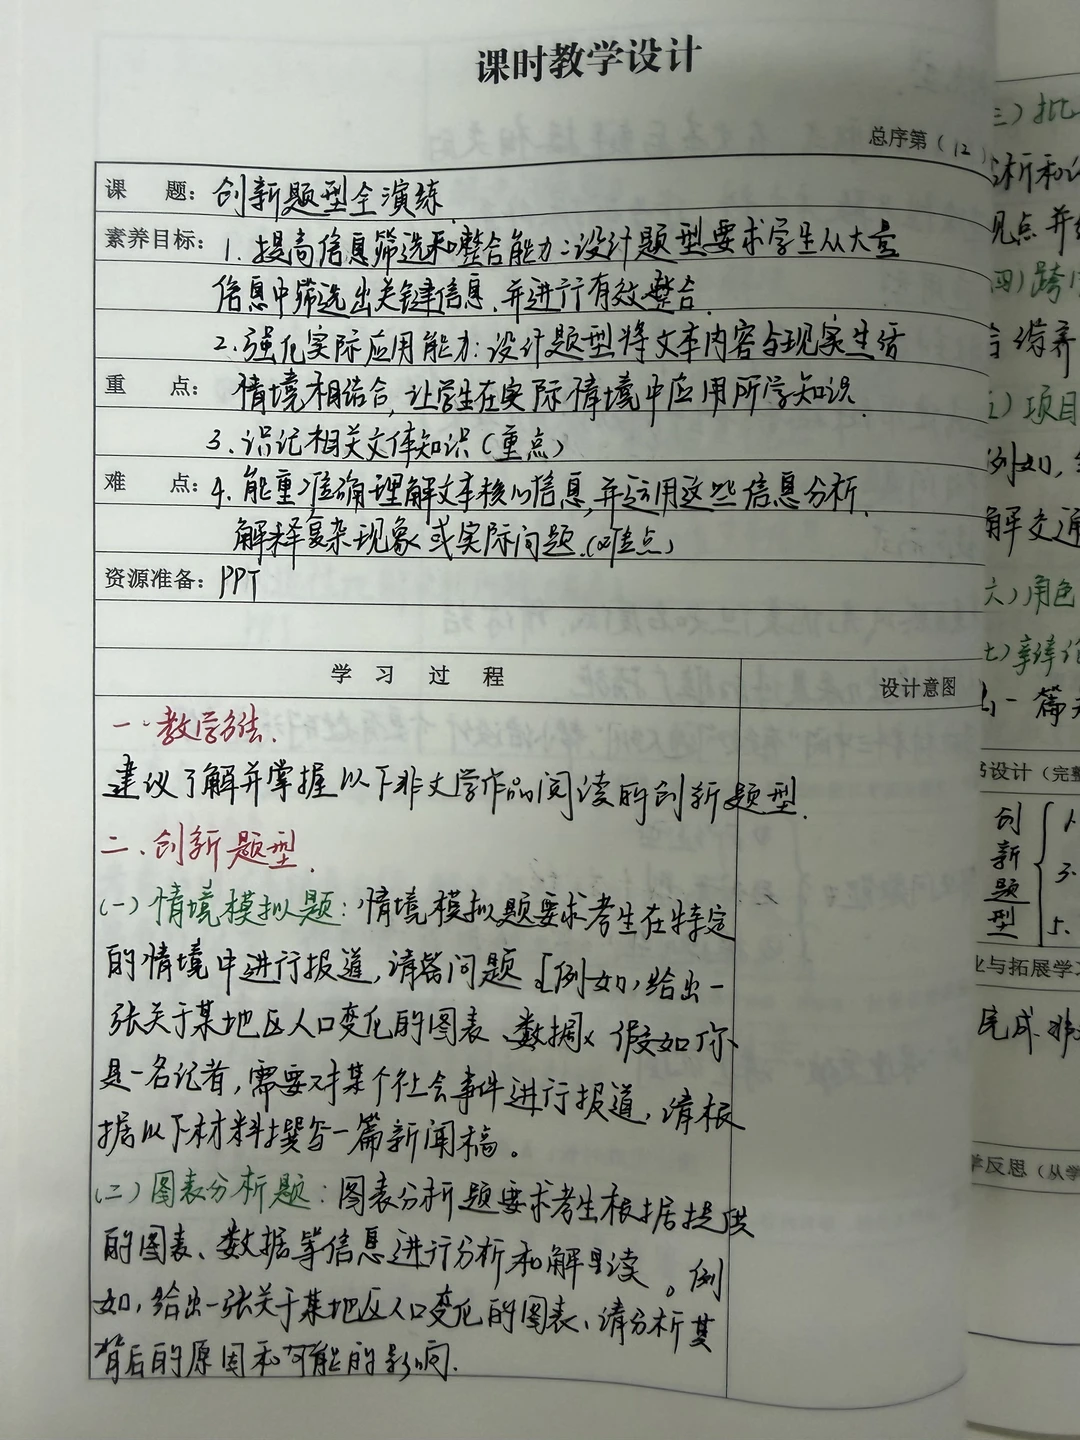 课时教学设计
总序第（12）
课 题：创新题型全演练
素养目标：1.提高信息筛选和整合能力：设计题型要求学生从大量
信息中筛选出关键信息，并进行有效整合.
2.强化实际应用能力：设计题型将文本内容与现实生活
重 点：情境相结合，让学生在实际情境中应用所学知识.
3.识记相关文体知识（重点）
难 点：4.能重准确理解文本核心信息，并运用这些信息分析.
解释复杂现象或实际问题.（难点）
资源准备：PPT
学 习 过 程
设计意图
一.教学方法.
建议了解并掌握以下非文学作品阅读的创新题型.
二.创新题型.
(一)情境模拟题：情境模拟题要求考生在特定
的情境中进行报道，请答问题 例如，给出一
张关于某地区人口变化的图表、数据 假如你
是一名记者，需要对某个社会事件进行报道，请根
据以下材料撰写一篇新闻稿。
(二)图表分析题：图表分析题要求考生根据提供
的图表、数据等信息进行分析和解读。例
如，给出一张关于某地区人口变化的图表、请分析其
背后的原因和可能的影响.
三）批
析和
见点并
四）跨
项目
例如，
解交通
六）角色
七）辩论
一篇
设计（完整
创新题型
1.
3.
5.
业与拓展学
完成
学反思（从学